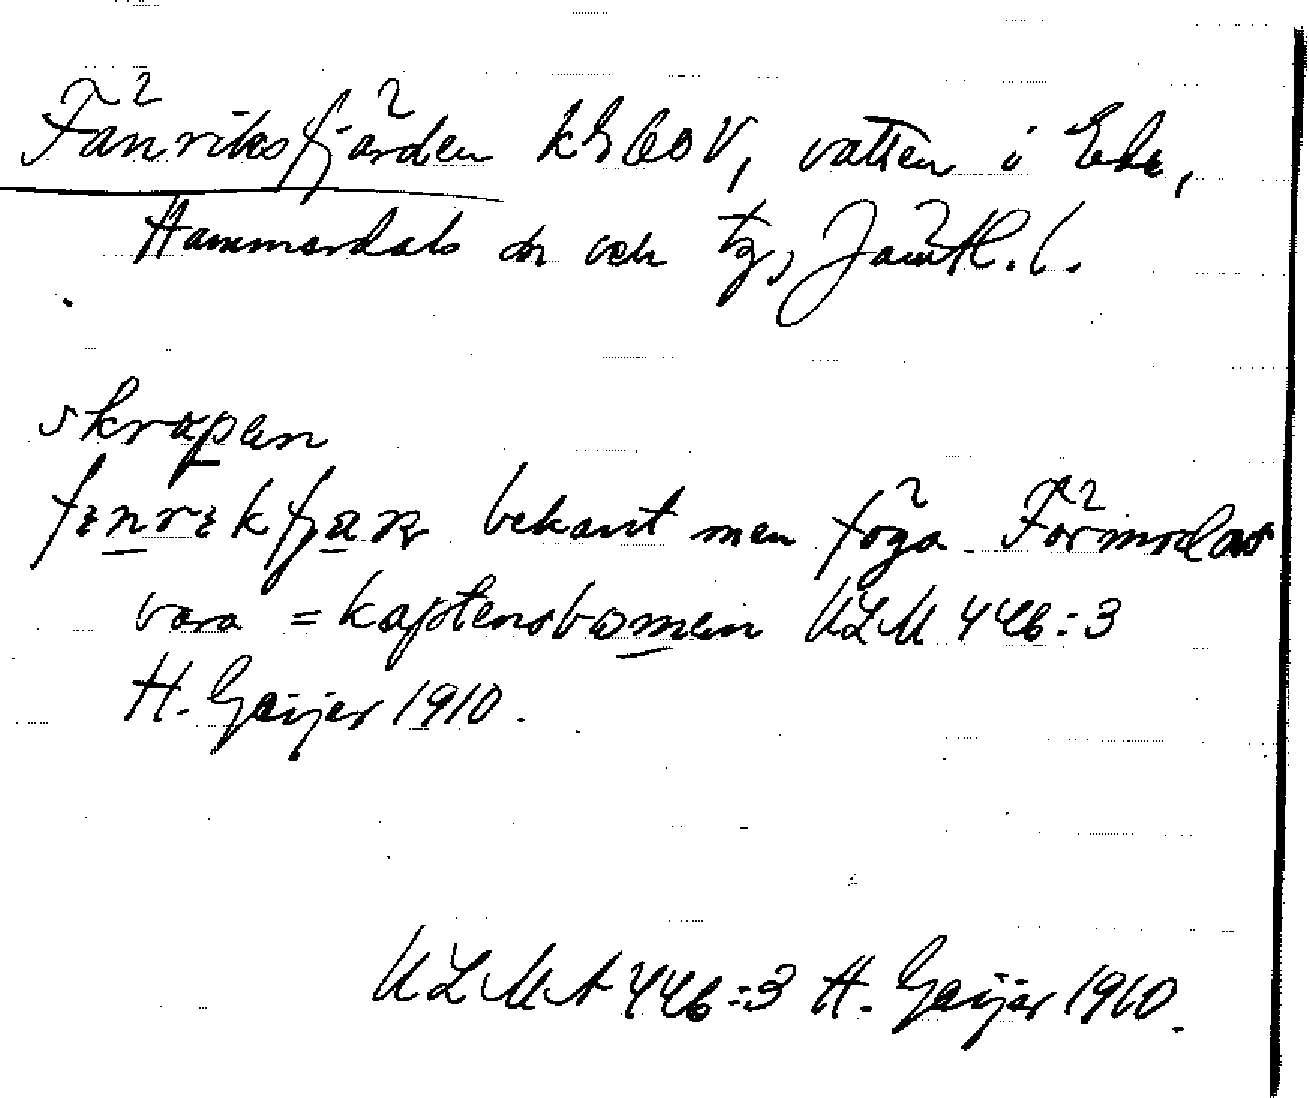 Fänriksfjärden kh60V, vatten i Ede,
Hammerdals sn och tg, Jämtl. l.
skrapen
fenrekfjæṛ bekant men föga. Förmodas
vara = kaptensbomen ULMA 446:3
H. Geijer 1910.
ULMA 446:3 H. Geijer 1910.